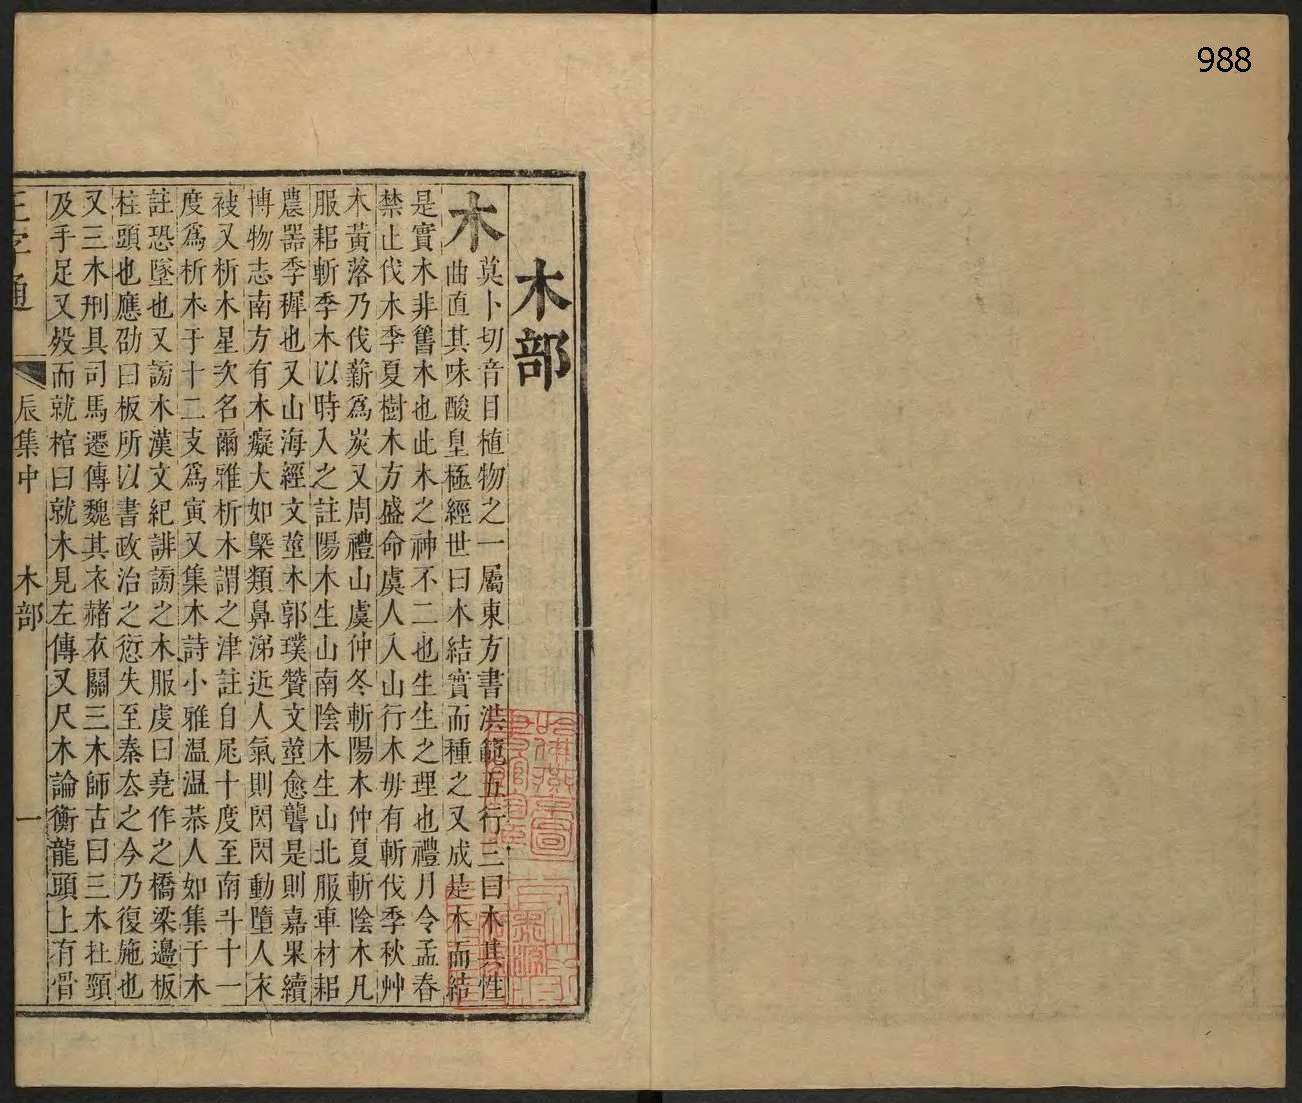 988
木部
木
莫卜切音目植物之一屬東方書洪範五行三曰木其性
曲直其味酸皇極經世曰木結實而種之又成是木而結
是實木非舊木也此木之神不二也生生之理也禮月令孟春
禁止伐木季夏樹木方盛命虞人入山行木毋有斬伐季秋艸
木黃落乃伐薪爲炭又周禮山虞仲冬斬陽木仲夏斬陰木凡
服耜斬季木以時入之註陽木生山南陰木生山北服車材耜
農器季穉也又山海經文莖木郭璞贊文莖愈聾是則嘉果續
博物志南方有木癡大如槩類鼻涕近人氣則閃閃動墮人衣
被又析木星次名爾雅析木謂之津註自尾十度至南斗十一
度爲析木于十二支爲寅又集木詩小雅温温恭人如集于木
註恐墜也又謗木漢文紀誹謗之木服虔曰堯作之橋梁邊板
柱頭也應劭曰板所以書政治之愆失至秦厺之今乃復施也
又三木刑具司馬遷傳魏其衣赭衣關三木師古曰三木在頸
及手足又殁而就棺曰就木見左傳又尺木論衡龍頭上有骨
正字通
辰集中
木部
一